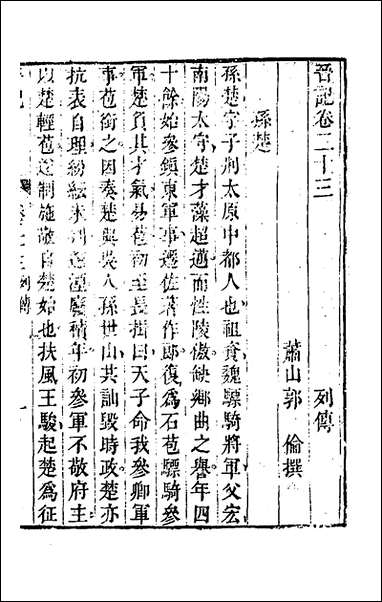 晉記卷二十三　列傳
蕭山郭　倫撰
孫楚
孫楚字子荆太原中都人也祖資魏驃騎將軍父宏
南陽太守楚才藻超邁而性陵傲缺鄉曲之譽年四
十餘始參鎮東軍事遷佐著作郎復爲石苞驃騎參
軍楚負其才氣易苞初至長揖曰天子命我參卿軍
事苞銜之因奏楚與吳人孫世山共訕毀時政楚亦
抗表自理紛紜未判遂湮廢積年初參軍不敬府主
以楚輕苞遂制施敬自楚始也扶風王駿起楚爲征
列傳